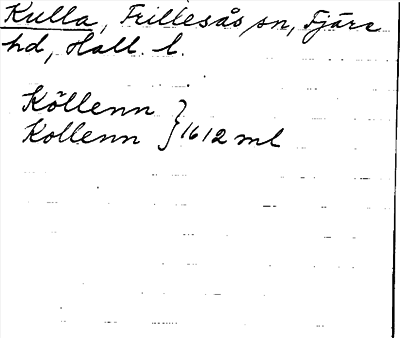 Kulla, Frillesås sn, Fjäre
hd, Hall. l.
Köllenn
Kollenn } 1612 ml